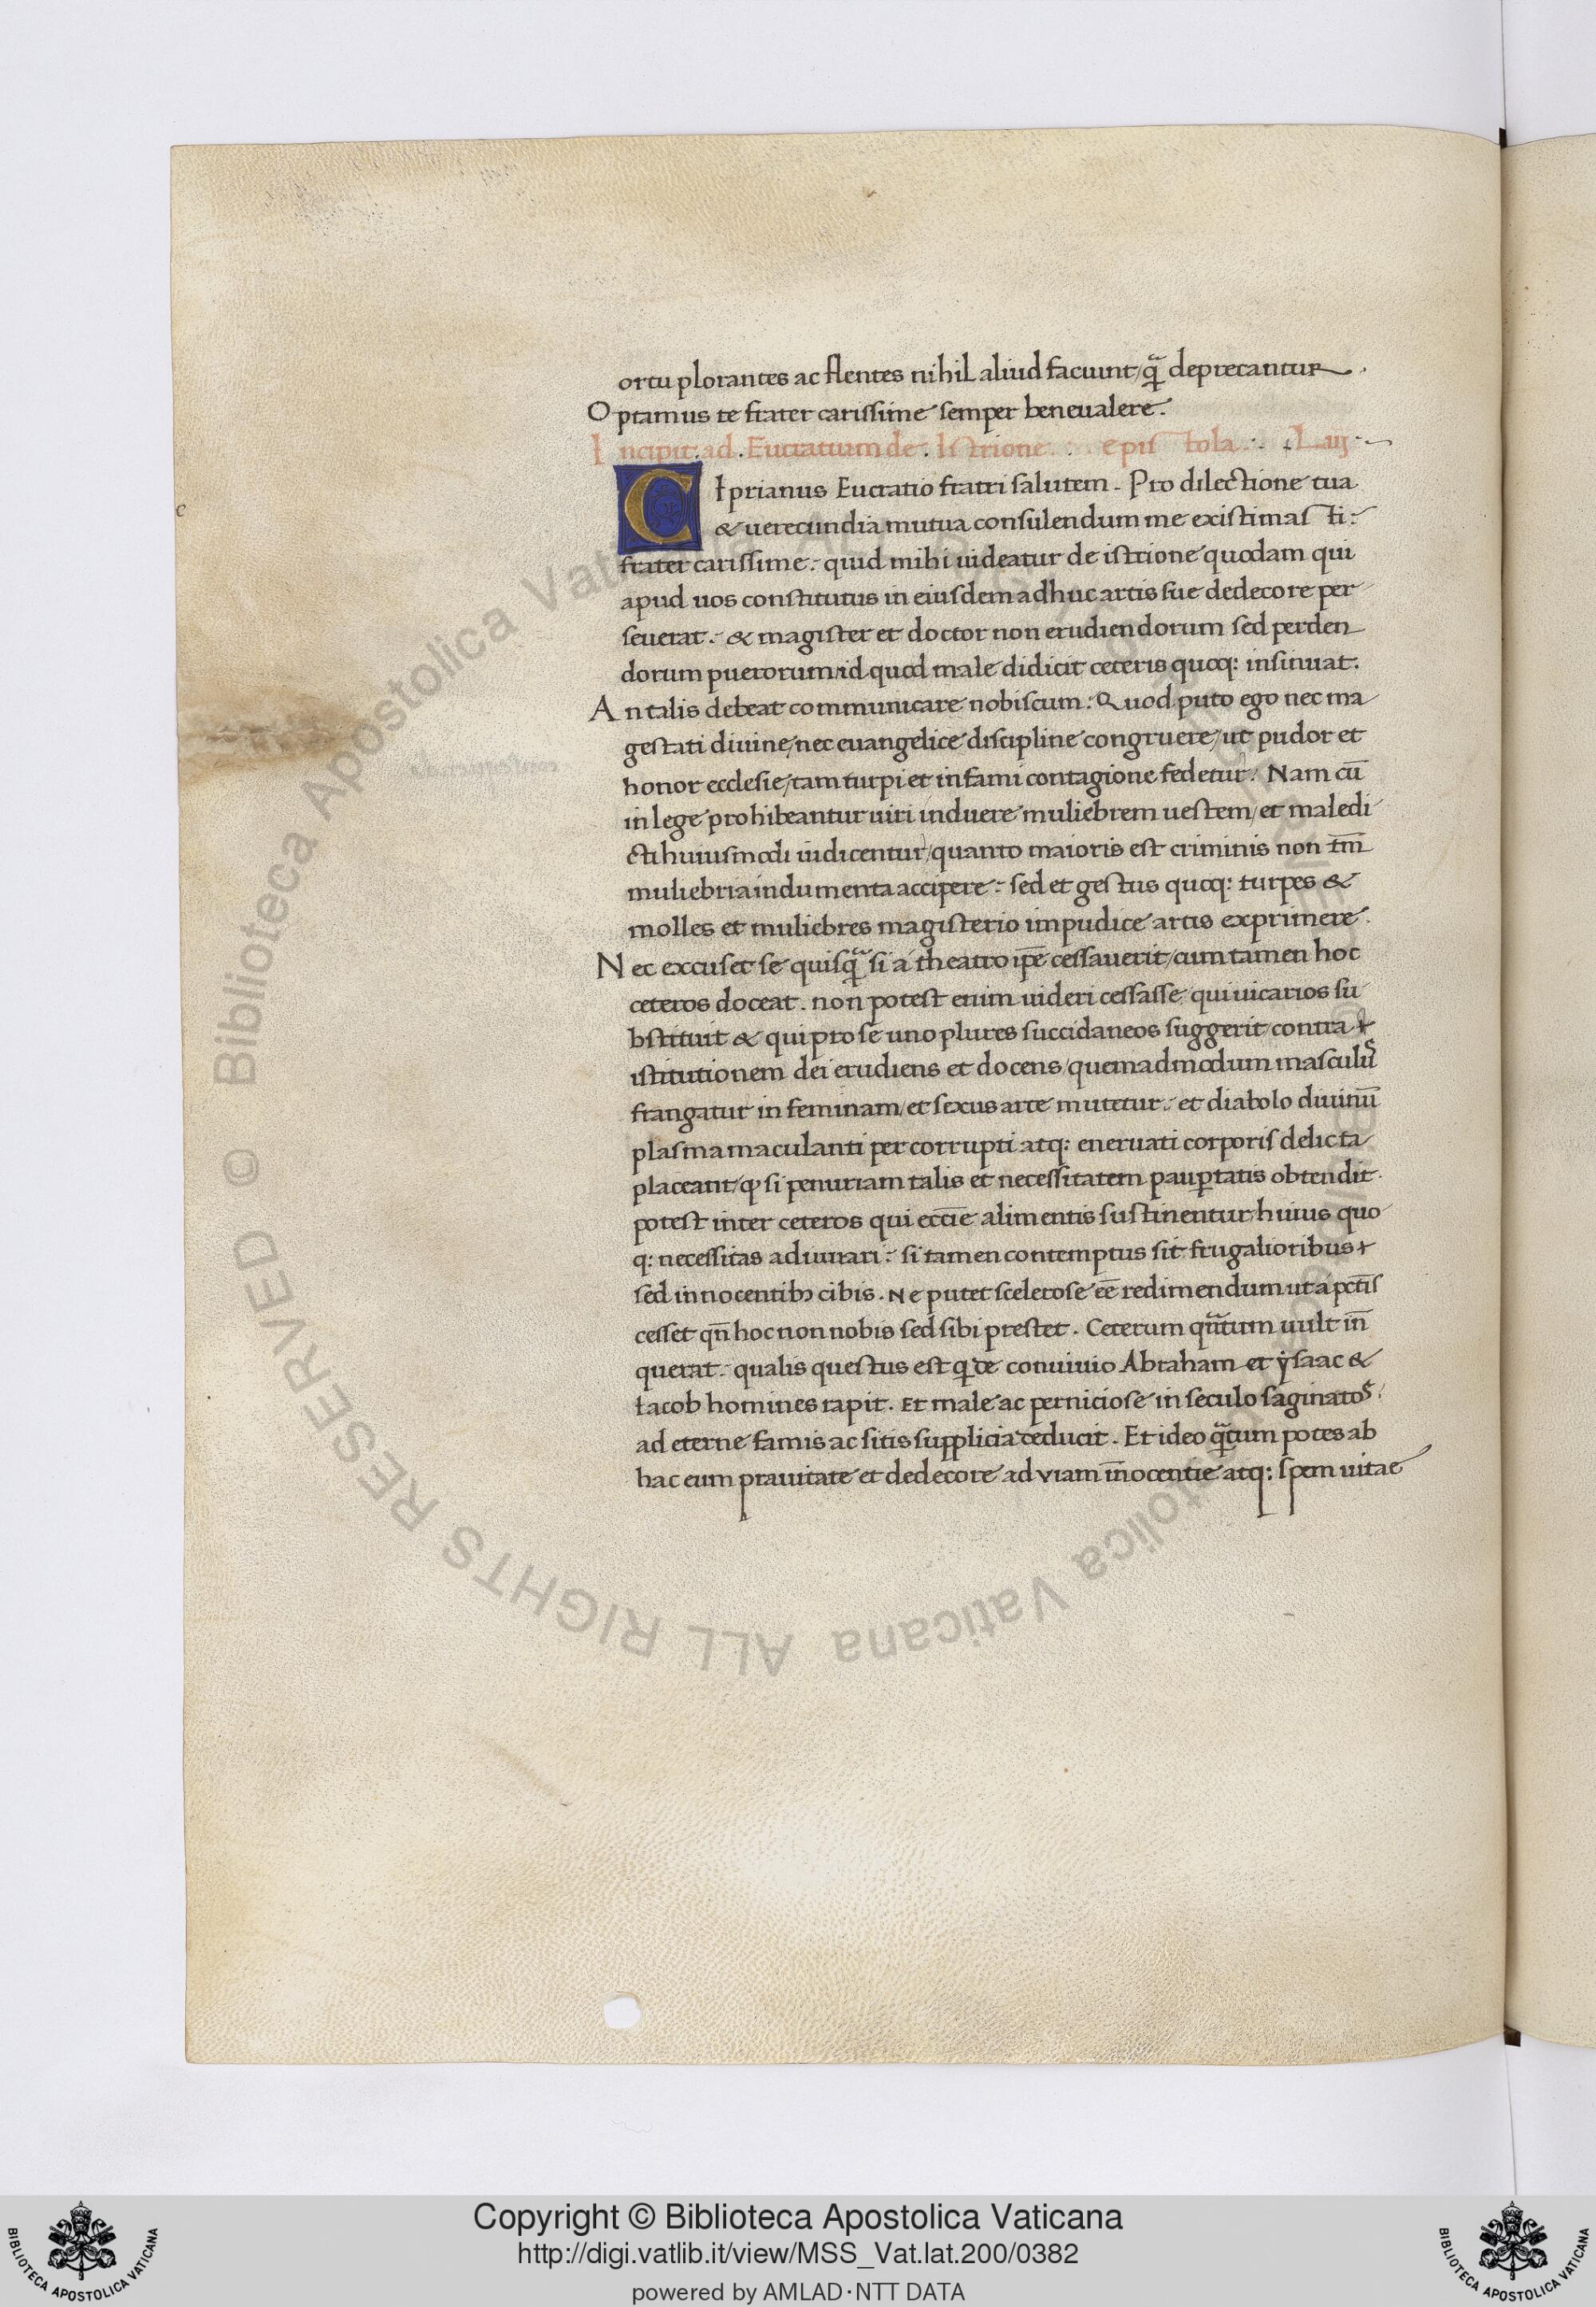 ortu plorantes ac flentes nihil aliud faciunt/ qͣ̄ deprecantur.
Optamus te frater carissime semper bene ualere.
Incipit. ad. Eucratium de. Istrione. epistola. Liij.
CIprianus Eucratio fratri salutem. Pro dilectione tua
& uerecundia mutua consulendum me existimasti:
frater carissime: quid mihi uideatur de istrione quodam qui
apud uos constitutus in eiusdem adhuc artis sue dedecore per
seuerat: & magister et doctor non erudiendorum sed perden
dorum puerorum/ id quod male didicit ceteris quoq: insinuat.
An talis debeat communicare nobiscum: Quod puto ego nec ma
gestati diuine/ nec euangelice discipline congruere/ ut pudor et
honor ecclesie/ tam turpi et infami contagione fedetur. Nam cū
in lege prohibeantur uiri induere muliebrem uestem/ et maledi
cti huiusmodi iudicentur/ quanto maioris est criminis non tm̄
muliebria indumenta accipere: sed et gestus quoq: turpes &
molles et muliebres magisterio impudice artis exprimere.
Nec excuset se quisqͣ̄ si a theatro ip̄e cessauerit/ cum tamen hoc
ceteros doceat. non potest enim uideri cessasse qui uicarios su
bstituit & qui pro se uno plures succidaneos suggerit contra
istitutionem dei erudiens et docens/ quemadmodum masculus
frangatur in feminam/ et sexus arte mutetur: et diabolo diuinū
plasma maculanti per corrupti atq: eneruati corporis delicta
placeant/ ꝙ si penuriam talis et necessitatem pauꝑtatis obtendit.
potest inter ceteros qui eccl̄ie alimentis sustinentur/ huius quo
q: necessitas adiuuari: si tamen contemptus sit frugalioribus
sed innocentibꝫ cibis. Ne putet scelerose eē redimendum ut a pctīs
cesset qn̄ hoc non nobis sed sibi prestet. Ceterum qͣ̄tum uult in̄
querat: qualis questus est qui de conuiuio Abraham et ẏsaac &
Iacob homines rapit. Et male ac perniciose in seculo saginatos
ad eterne famis ac sitis supplicia deducit. Et ideo qͣ̄tum potes ab
hac eum prauitate et dedecore ad viam in̄ocentie atq: spem uitae
c
Biblioteca Apostolica Vaticana ALL RIGHTS RESERVED ©
Copyright © Biblioteca Apostolica Vaticana
http://digi.vatlib.it/view/MSS_Vat.lat.200/0382
powered by AMLAD·NTT DATA
BIBLIOTECA APOSTOLICA VATICANA
BIBLIOTECA APOSTOLICA VATICANA